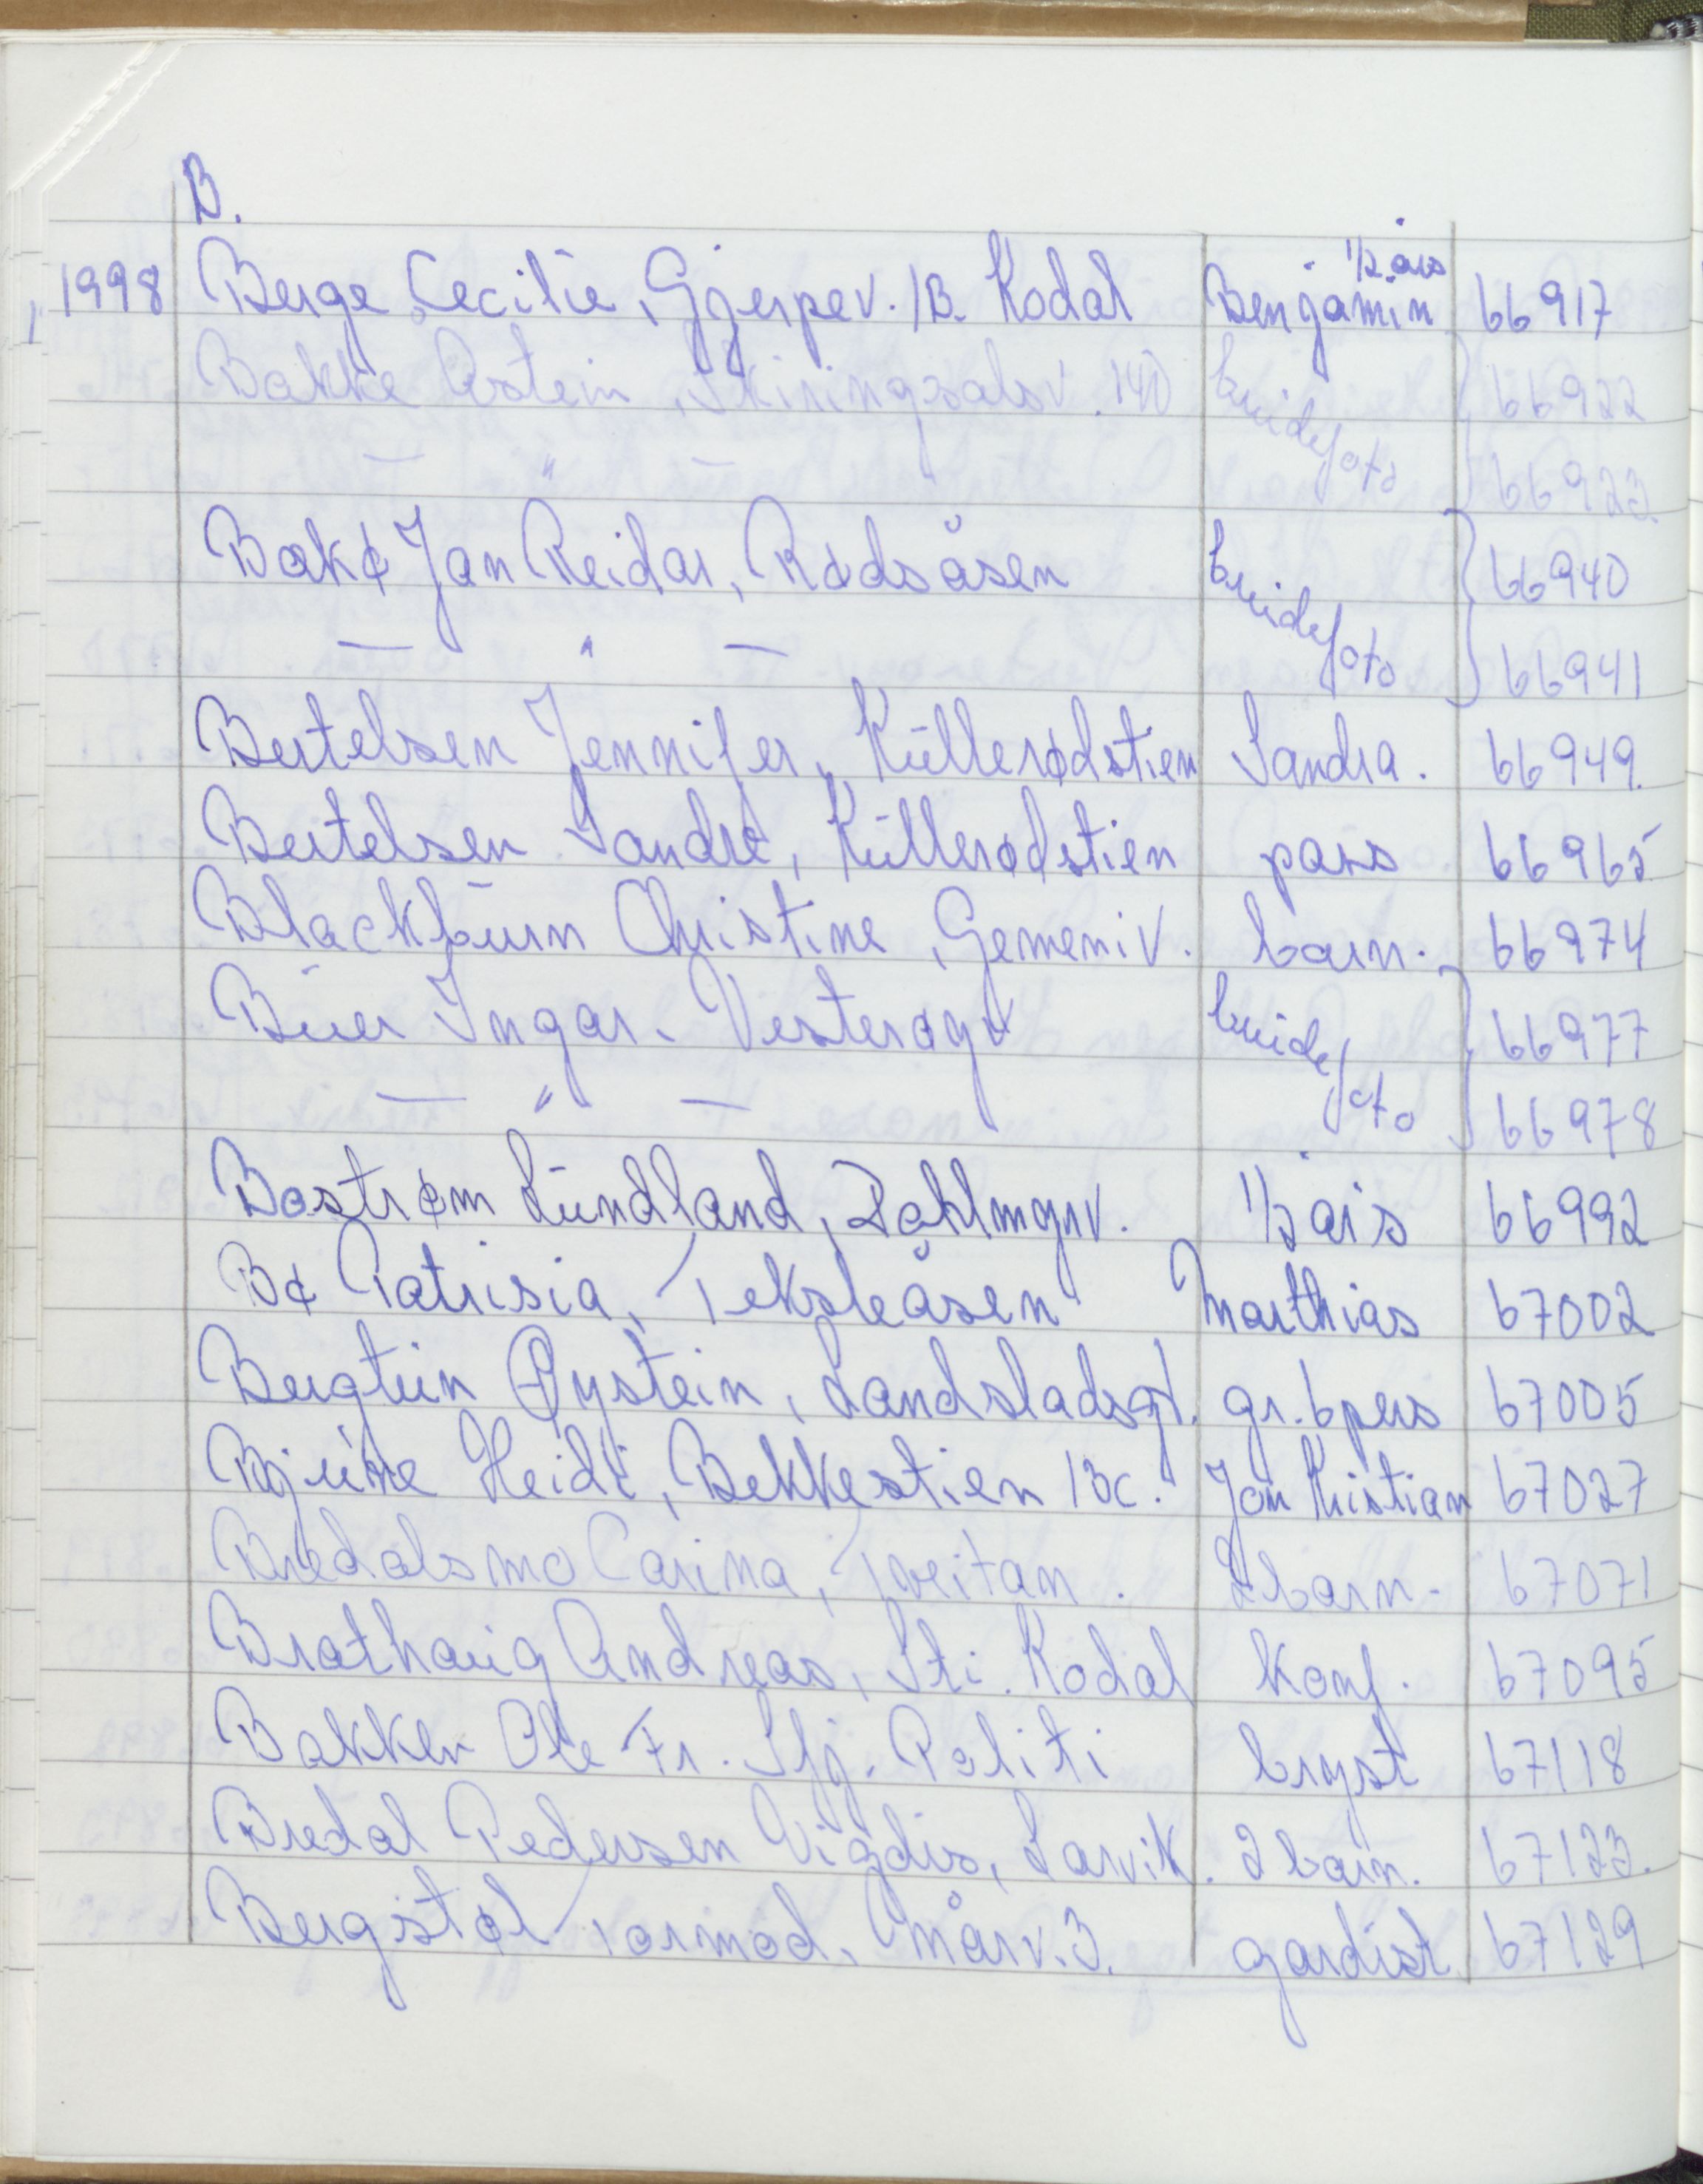 B.
1998 Berge Cecilie, Gjerpev. 1B. Kodal Benjamin 1/2 års 66917
Bakke Østein, Skiringssalsv. 140 brudefoto 66922
— " — 66923.
Bakø Jan Reidar, Rødsåsen brudefoto 66940
— " — 66941
Bertelsen Jennifer, Küllerødstien Sandra. 66949.
Bertelsen Sandre, Küllerødstien pass 66965
Blackburn Christine, Gemeniv. barn. 66974
Buer Ingar. Vesterøyv brudefoto 66977
— " — 66978
Bostrøm Lundland, Dahlmgrv. 1/2 års 66992
Bø Patrisia, Teksleåsen Marthias 67002
Bergtun Øystein, Landstadsgt. gr. 6 pers 67005
Bjune Heidi, Bekkestien 13c. Jan Kristian 67027
Bredalsmo Carina, Tveitan. 2 barn. 67071
Brathaug Andreas, Sti. Kodal konf. 67095
Bakken Ole Fr. Sfj. Politi bryst 67118
Bredal Pedersen Vigdis, Larvik. 2 barn. 67123.
Bergstøl Tormod, Mårv. 3. gardist 67129